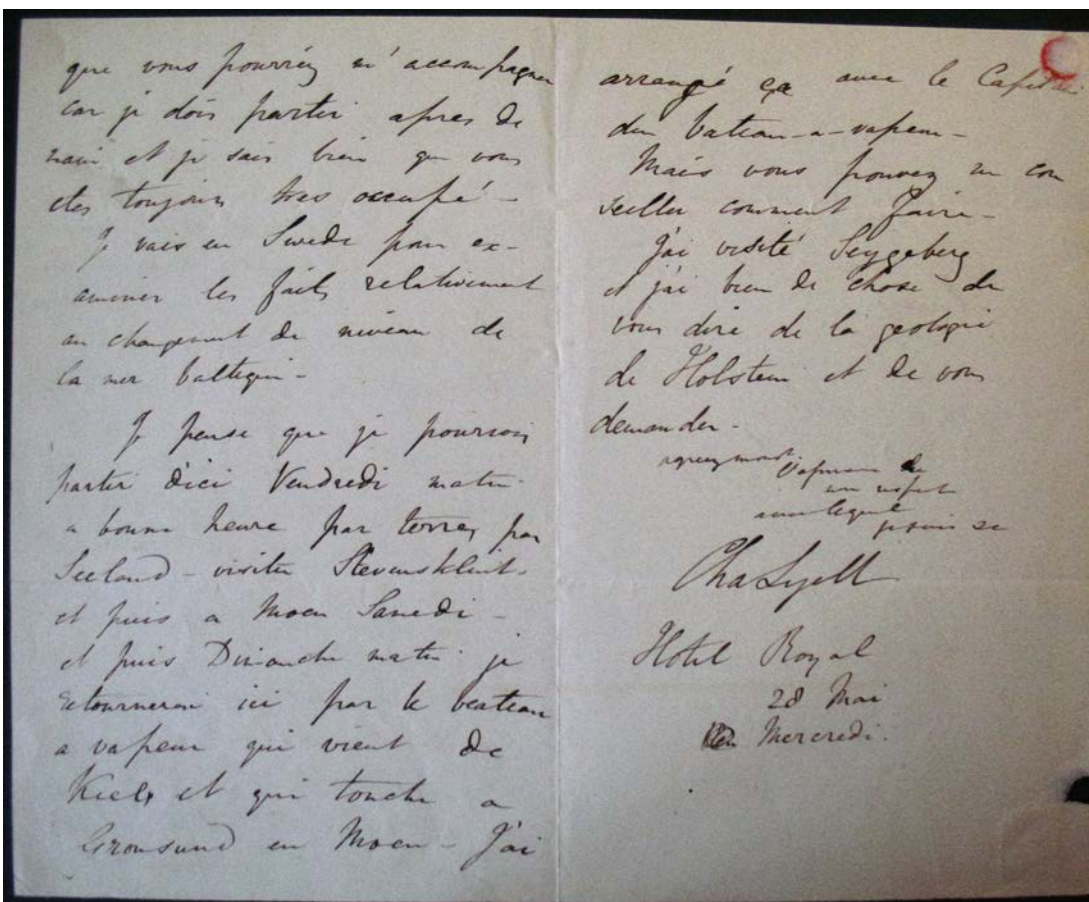 que vous pourriez m'accompagner
car je dois partir apres de
main et je sais bien que vous
etes toujours tres occupé -
Je vais en Swede pour ex-
aminer les faits relativement
au changement de niveau de
la mer baltique -
Je pense que je pourrois
partir d'ici Vendredi matin
a bonne heure par terre, par
Seeland - visiter Stevensklint -
et puis a Moen Samedi -
et puis Dimanche matin je
retournerai ici par le bateau
a vapeur qui vient de
Kiel et qui touche a
Gronsund en Moen - J'ai
arrangé ça avec le Capitain
du bateau-a-vapeur -
Mais vous pouvez me con
seiller comment faire -
J'ai visité Seggeberg
et j'ai bien de chose de
vous dire de la geologie
de Holstein et de vous
demander -
agreez mons.
du
respect
avec lequel
je suis
Cha Lyell
Hotel Royal
28 Mai
Mercredi.